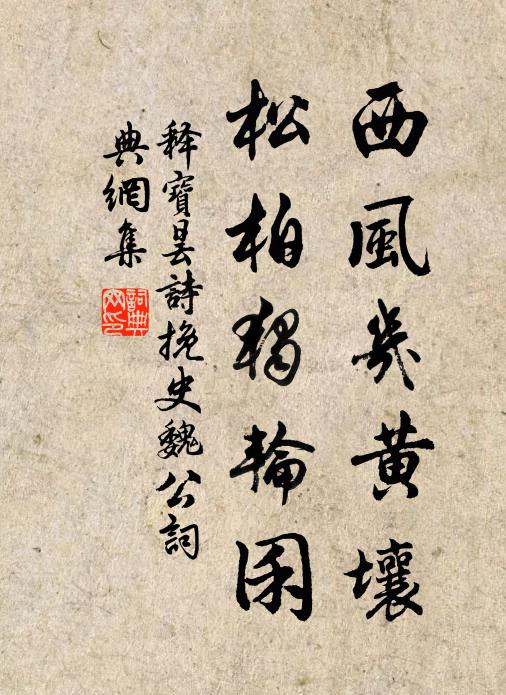 西風幾黄壤
松柏獨輪囷
釋寶曇詩挽史魏公詞
典網集
詞典網印